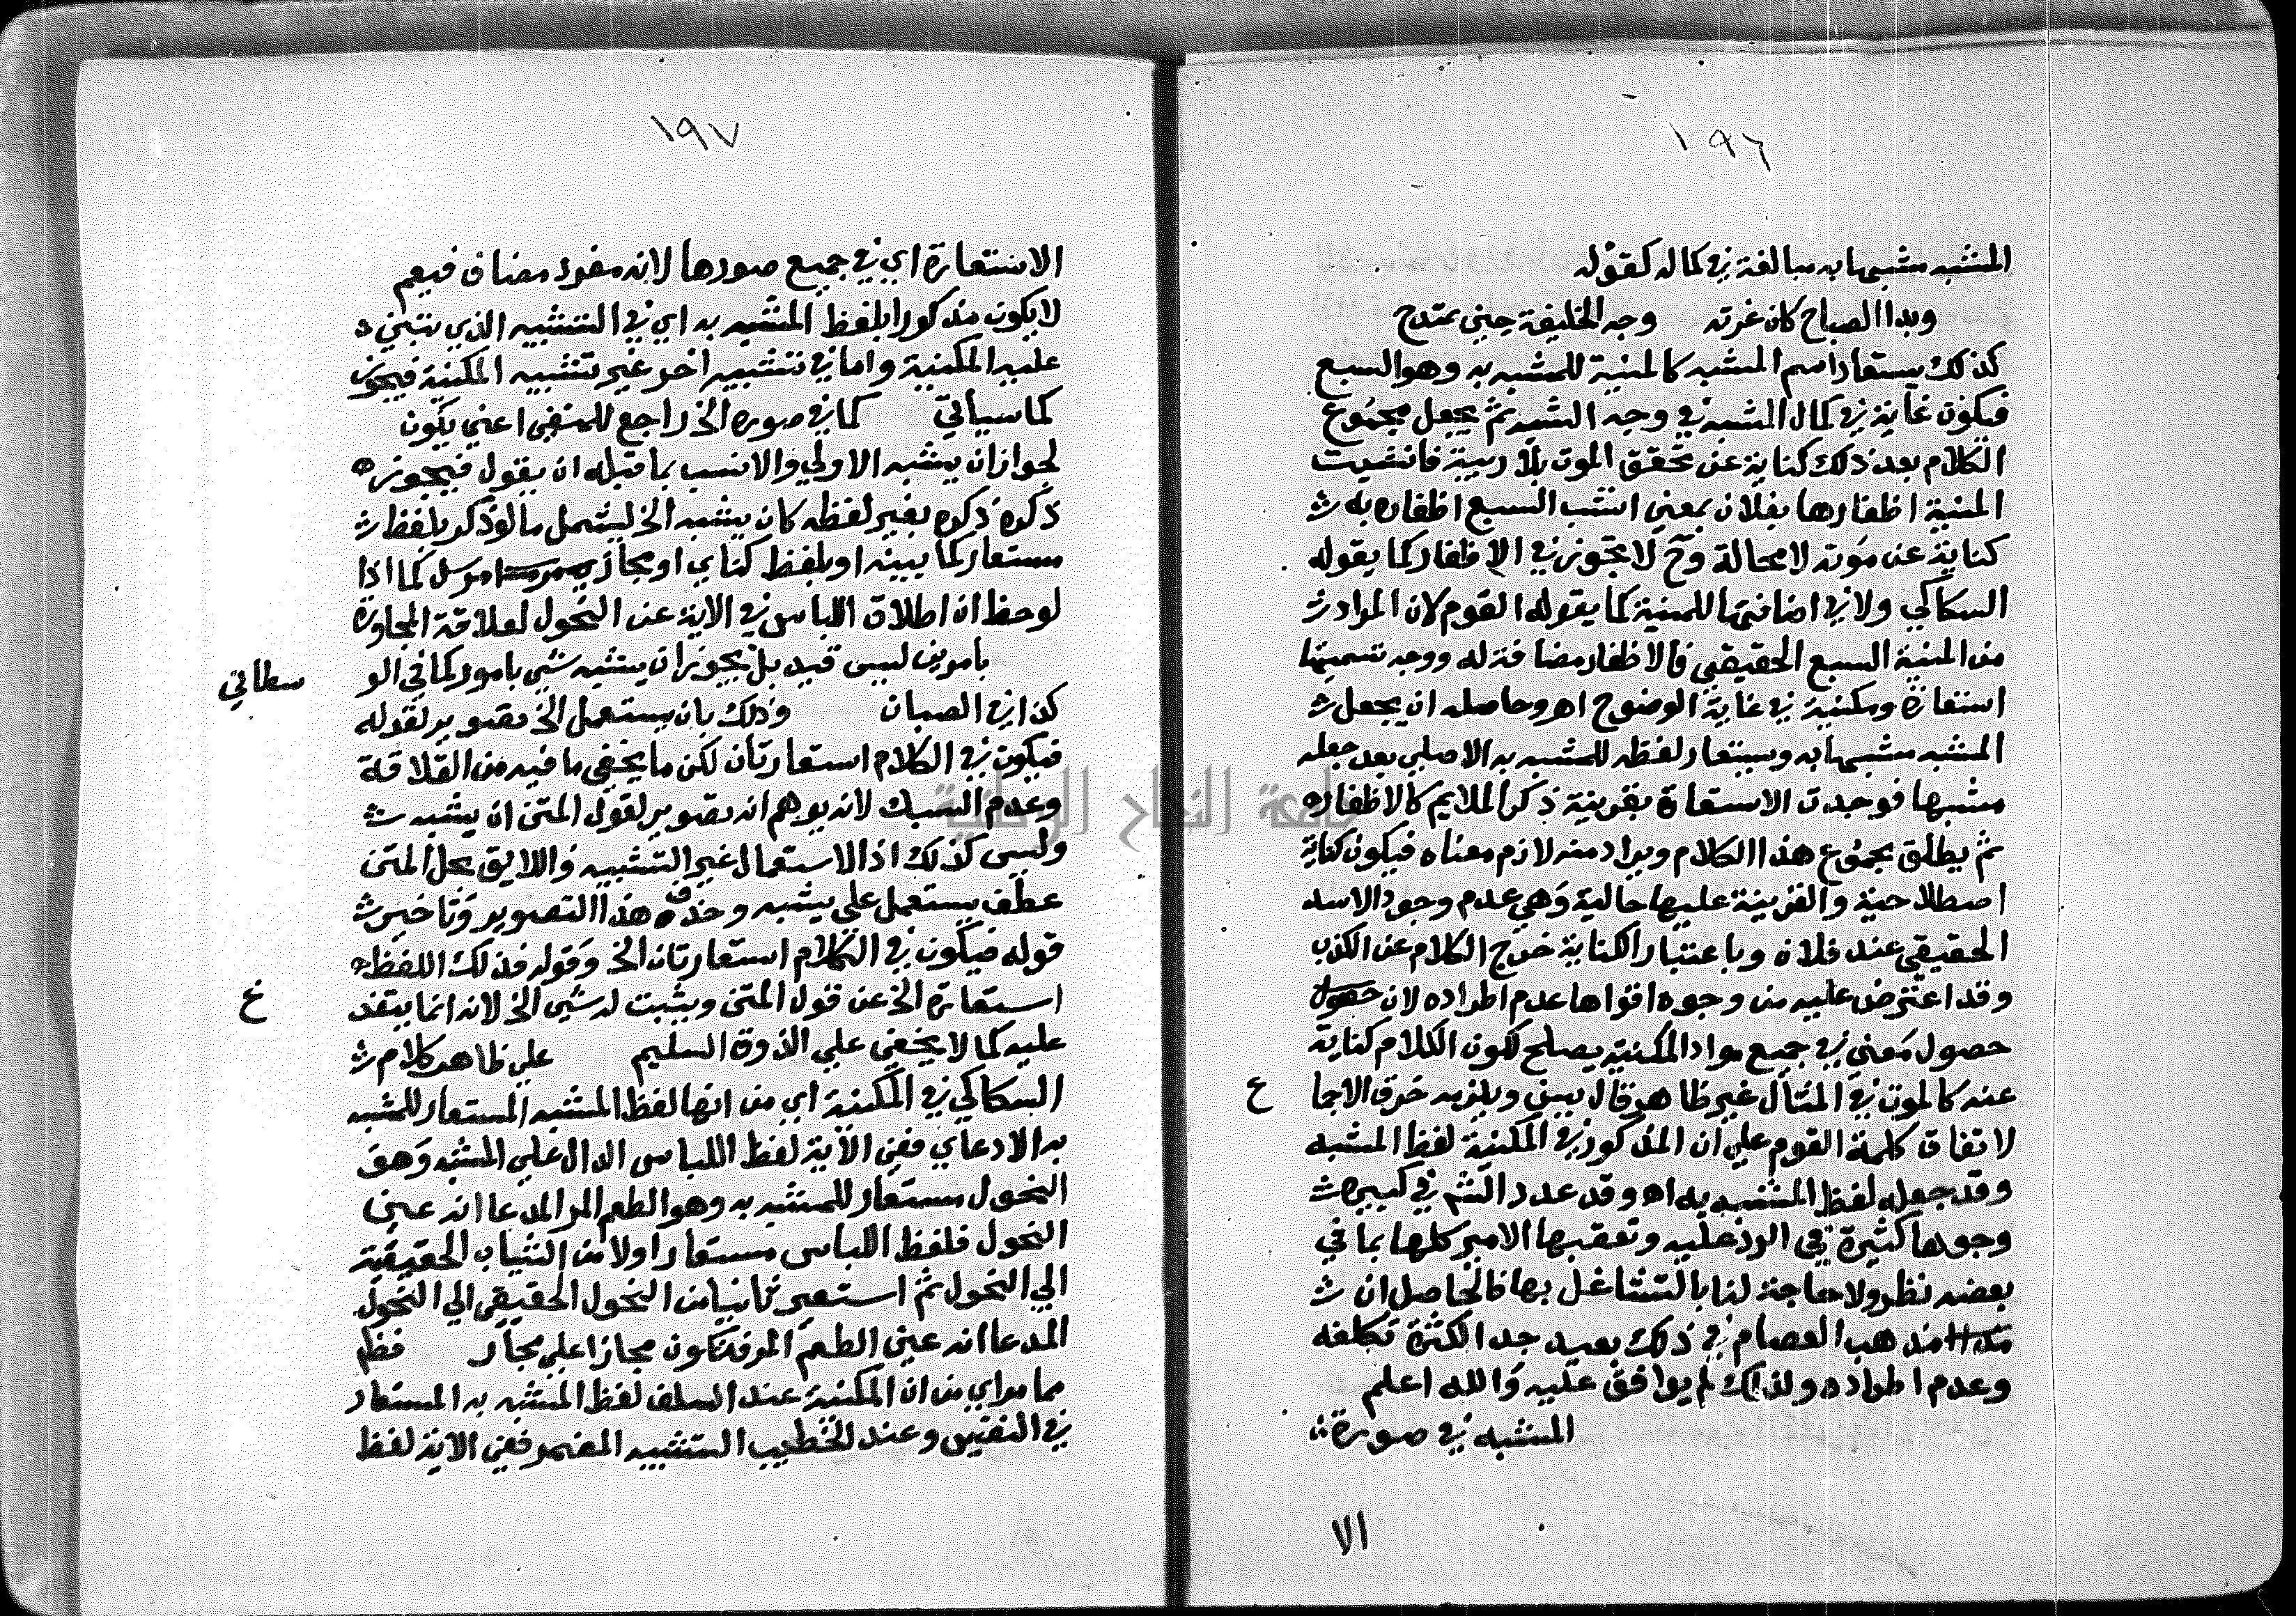 ١٩٦
المشبه مشبها به مبالغة في كماله كقوله
وبدا الصباح كان غرته وجه الخليفة حين يمتدح
كذلك يستعار اسم المشبه كالمنية للمشبه به وهو السبع
فيكون غاية في كمال المشبه في وجه الشبه ثم يجعل مجموع
الكلام بعد ذلك كناية عن تحقق الموت بلا ريبة فانشبت
المنية اظفارها بفلان بمعني انشب السبع اظفاره به
كناية عن موته لا محالة وح لا تجوز في الاظفار كما يقوله
السكاكي ولا في اضافتها للمنية كما يقوله القوم لان المراد
من المنية السبع الحقيقي فالاظفار مضافة له ووجه تسميتها
استعارة ومكنية في غاية الوضوح اه وحاصله ان يجعل
المشبه مشبها به ويستعار لفظه للمشبه به الاصلي بعد جعله
مشبها فوجدت الاستعارة بقرينة ذكر الملايم كالاظفار
ثم يطلق مجموع هذا الكلام ويراد منه لازم معناه فيكون كناية
اصطلاحية والقرينة عليها حالية وهي عدم وجود الاسد
الحقيقي عند فلان وباعتبار الكناية خرج الكلام عن الكذب
وقد اعترض عليه من وجوه اقواها عدم اطراده لان
حصول معني في جميع مواد المكنية يصلح لكون الكلام كناية
عنه كالموت في المثال غير ظاهر قال يس ويلزمه خرق الاجما ع
لاتفاق كلمة القوم علي ان المذكور في المكنية لفظ المشبه
وقد جعله لفظ المشبه به اه وقد عدد الشم في كبيره
وجوها كثيرة في الرد عليه وتعقبها الامير كلها بما في
بعضه نظر ولا حاجة لنا بالتشاغل بها فالحاصل ان
مذهب العصام في ذلك بعيد جدا لكثرة تكلفه
وعدم اطراده ولذلك لم يوافق عليه والله اعلم
المشبه في صورة
الا
١٩٧
الاستعارة اي في جميع صورها لانه مفرد مضاف فيعم
لا يكون مذكورا بلفظ المشبه به اي في التشبيه الذي تبتني
عليه المكنية واما في تشبيه اخر غير تشبيه المكنية فيجوز
كما سياتي كما في صورة الخ راجع للمنفي اعني يكون
لجواز ان يشبه الاولي والانسب بما قبله ان يقول فيجوز
ذكره ذكره بغير لفظه كان يشبه الخ ليشمل ما لو ذكر بلفظ
مستعار كما بينه او بلفظ كناي او مجازي مرسل كما اذا
لوحظ ان اطلاق اللباس في الاية عن النحول لعلاقة المجاورة
بامرين ليس قيد بل يجوز ان يشبه شي بامور كما في الو سطاتي
كذا في الصبان وذلك بان يستعمل الخ تصوير لقوله
فيكون في الكلام استعارتان لكن ما يخفي ما فيه من القلاقة
وعدم السبك لانه يوهم انه تصوير لقول المتن ان يشبه
وليس كذلك اذ الاستعمال غير التشبيه واللايق بحل المتن
عطف يستعمل علي يشبه وحذف هذا التصوير وتاخير
قوله فيكون في الكلام استعارتان الخ وقوله فذلك اللفظ
استعارة الخ عن قول المتن ويثبت له شي الخ لانه انما يتفر ع
عليه كما لا يخفي علي الذوق السليم علي ظاهر كلام
السكاكي في المكنية اي من انها لفظ المشبه المستعار للمشبه
به الادعاي ففي الاية لفظ اللباس الدال علي المشبه وهو
النحول مستعار للمشبه به وهو الطعم المر المدعا انه عين
النحول فلفظ اللباس مستعار اولا من الثياب الحقيقية
الي النحول ثم استعير ثانيا من النحول الحقيقي الي النحول
المدعا انه عين الطعم المر فتكون مجازا علي مجاز فظهر
مما مر اي من ان المكنية عند السلف لفظ المشبه به المستعار
في النفس وعند الخطيب التشبيه المضمر ففي الاية لفظ